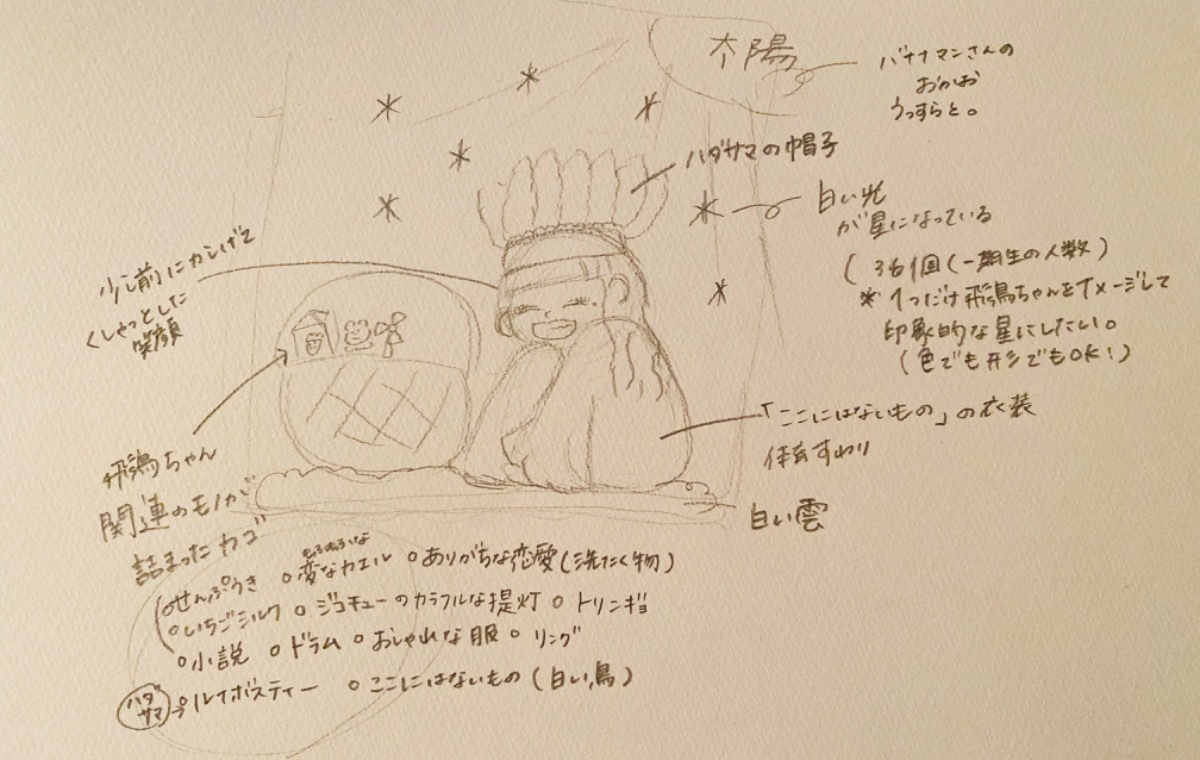 太陽
バナナマンさんの
おかお
うっすらと。
ハダサマの帽子
白い光
が星になっている
(36個(一期生の人数)
*1つだけ飛鳥ちゃんをイメージして
印象的な星にしたい。
(色でも形でもOK!)
少し前にカシげて
くしゃっとした
笑顔
「ここにはないもの」の衣装
体育すわり
白い雲
飛鳥ちゃん
関連のモノが
詰まったカゴ
○せんぷうき ○変なカエル ○ありがちな恋愛(洗たく物)
○いちごミルク ○ジコチューのカラフルな提灯 ○トリンギョ
○小説 ○ドラム ○おしゃれな服 ○リング
ハダサマ ○ルイボスティー ○ここにはないもの(白い鳥)